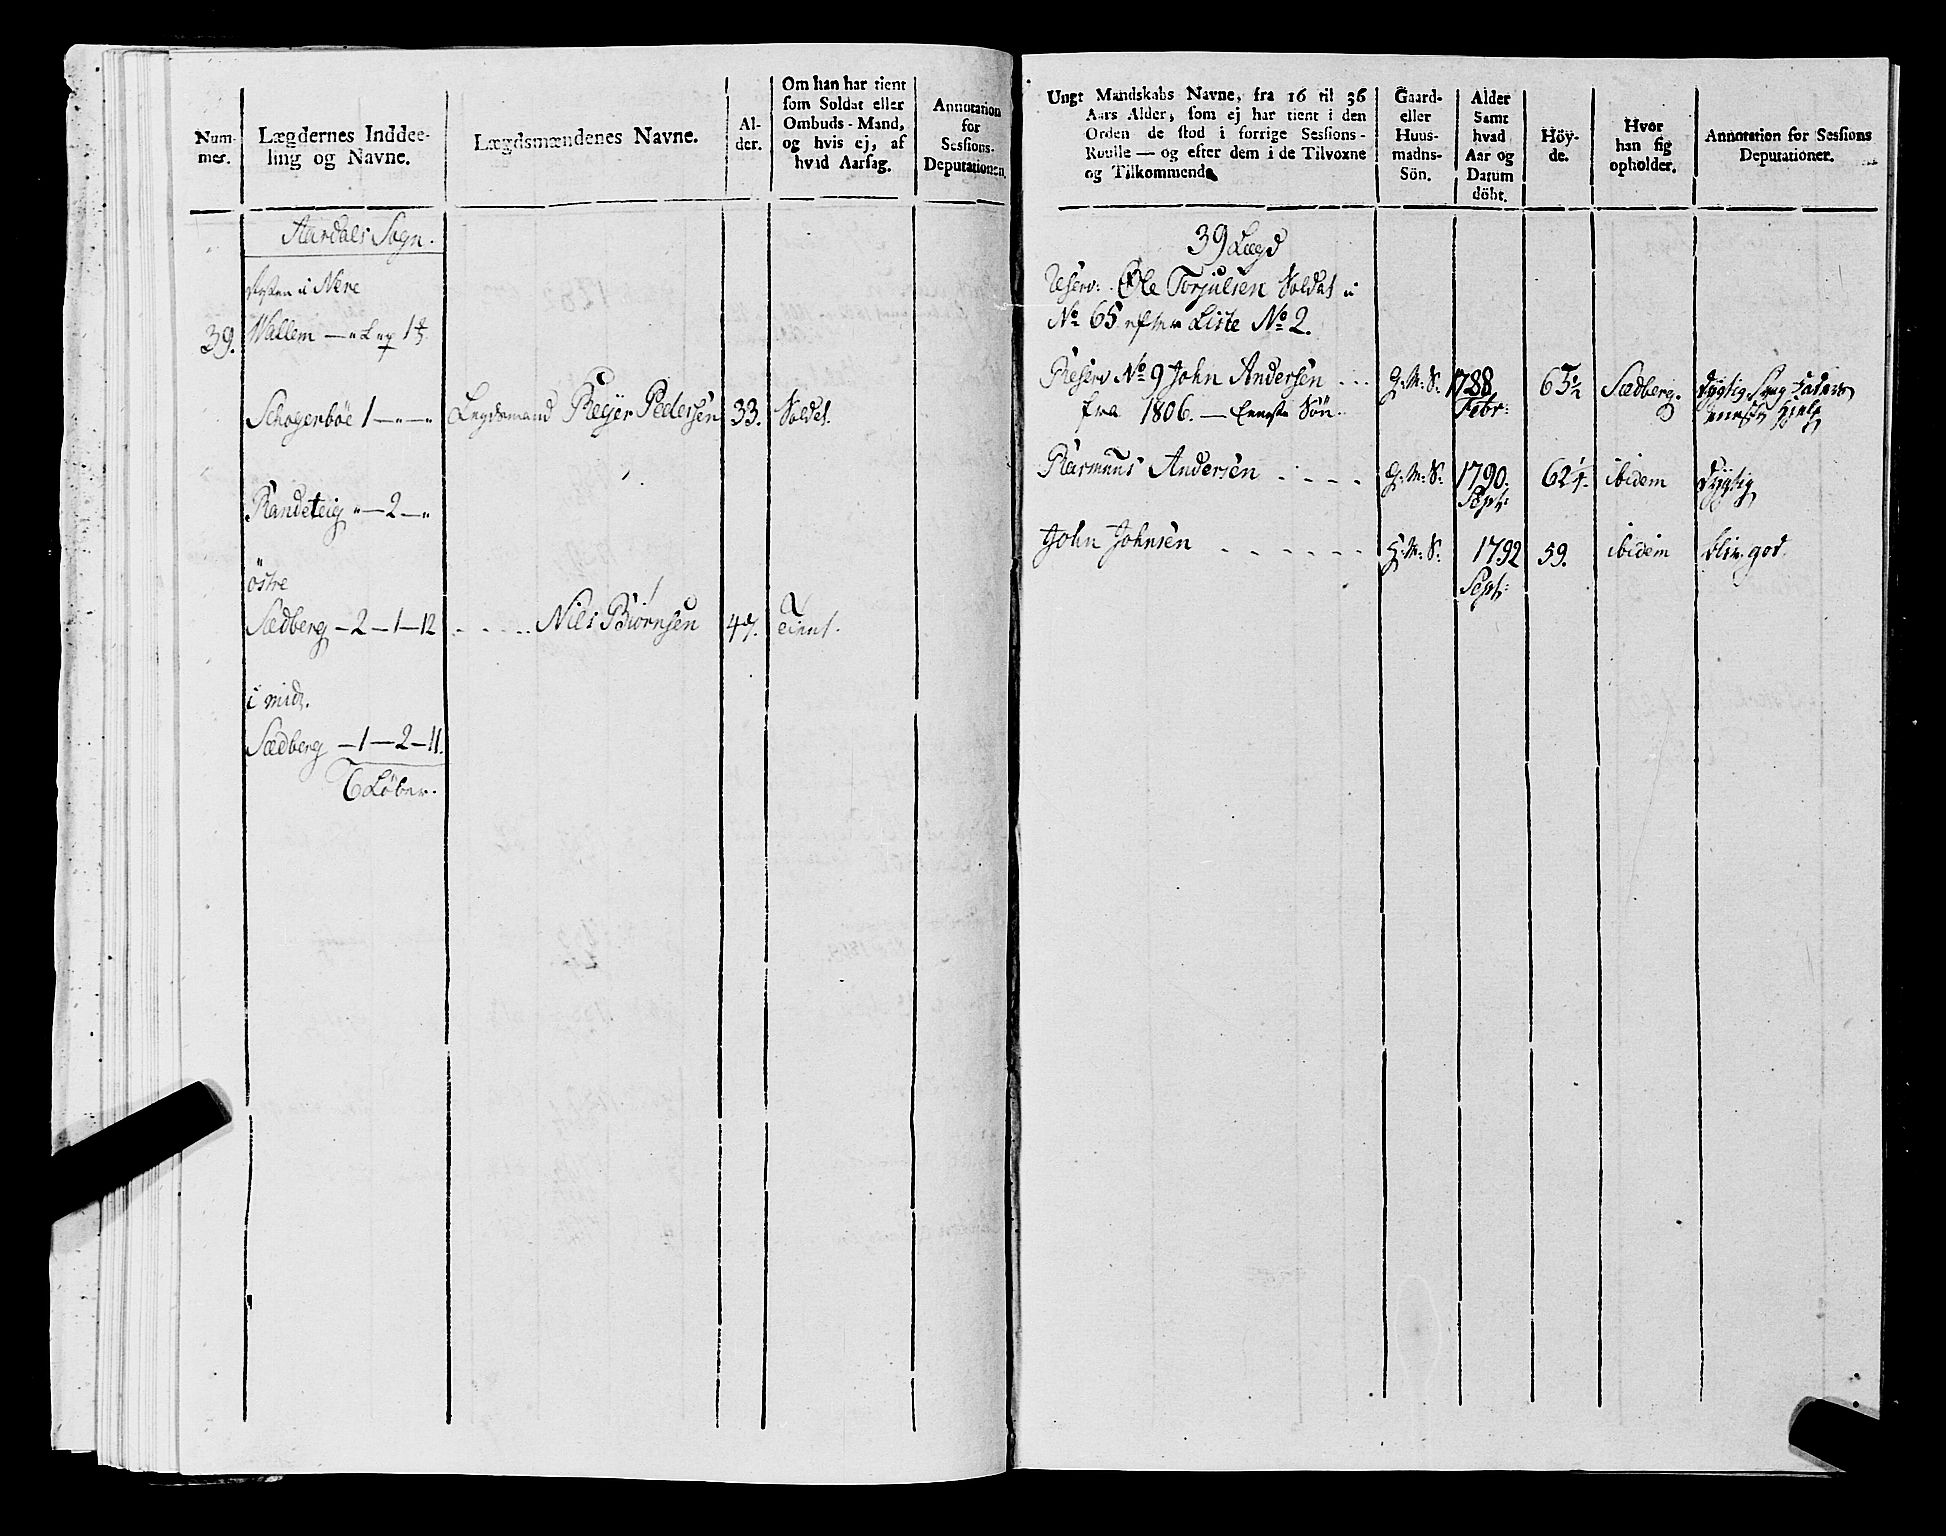 Num-
mer.
Lægdernes Inddee-
ling og Navne.
Lægdsmændenes Navne.
Al-
der.
Om han har tient
som Soldat eller
Ombuds-Mand,
og hvis ej, af
hvad Aarsag.
Annotation
for
Sessions-
Deputationen.
Aardals Sogn.
i Nere
39. Wallem
Schogenböe 1 Legdsmand Reyer Pedersen 33. Soldat.
Randeteig " — 2 — "
östre
Sædberg — 2 — 1 — 12 Nils Biörnsen Tient.
i mid.
Sædberg — 1 — 2 — 11.
6 Löber.
Ungt Mandskabs Navne, fra 16 til 36
Aars Alder, som ej har tient i den
Orden de stod i forrige Sessions-
Roulle — og efter dem i de Tilvoxne
og Tilkommende
Gaard-
eller
Huus-
madns-
Sön.
Alder
Samt
hvad
Aar og
Datum
döbt.
Höy-
de.
Hvor
han sig
opholder.
Annotation for Sessions
Deputationer.
39 Lægd
Reserv: Ole Torjulsen Soldat i
No 65 efter Liste No 2.
Reserv No 9 John Andersen . . . G: M: S. 1788 65½ Sædberg.
fra 1806. — Eneste Sön. Febr:
Rasmus Andersen . . . . G: M: S. 1790. 62¼. ibidem Dygtig
Sept:
John Johnsen . . . . . . . G: M: S. 1792 59. ibidem
Sept: